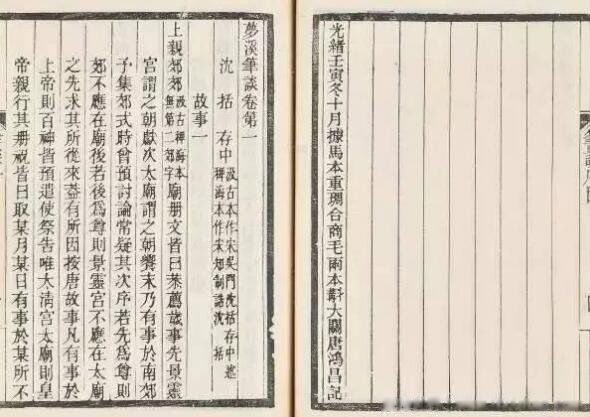 光緒壬寅冬十月據馬本重琱合商毛兩本斠大關唐鴻昌記
夢溪筆談卷第一
沈括存中汲古本作宋吳門沈括存中述稗海本作宋知制誥沈括
故事一
上親郊郊汲古稗海本無第二郊字廟册文皆曰恭薦歲事先景靈
宮謂之朝獻次太廟謂之朝饗末乃有事於南郊
予集郊式時曾預討論常疑其次序若先爲尊則
郊不應在廟後若後爲尊則景靈宮不應在太廟
之先求其所從來蓋有所因按唐故事凡有事於
上帝則百神皆預遣使祭告唯太清宮太廟則皇
帝親行其册祝皆曰取某月某日有事於某所不